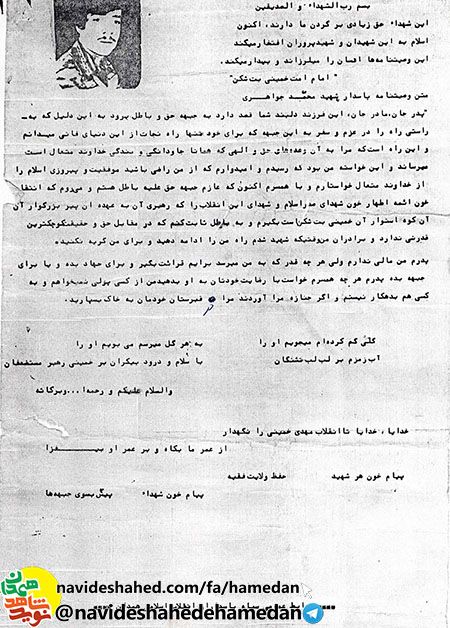 بسم رب الشهداء و الصدیقین
این شهداء حق زیادی بر گردن ما دارند، اکنون
اسلام به این شهیدان و شهیدپروران افتخار میکند
این وصیتنامه‌ها انسان را میلرزاند و بیدار میکند.
" امام امت خمینی بت شکن"
متن وصیتنامه پاسدار شهید محمد جواهری
"پدر جان، مادر جان، این فرزند دلبند شما قصد دارد به جبهه حق و باطل برود به این دلیل که به‌-
راستی راه را در عزم و سفر به این جبهه که برای خود تنها راه نجات از این دنیای فانی میدانم
و این راه است که مرا به آن وعده‌های حق و الهی که همانا جاودانگی و بندگی خداوند متعال است
میرساند و این خواسته من بود که رسیدم و امیدوارم که از من راضی باشید موفقیت و پیروزی اسلام را
از خداوند متعال خواستارم و با همسرم اکنون که عازم جبهه حق علیه باطل هستم و میروم که انتقام
خون ائمه اطهار خون شهدای صدر اسلام و شهدای این انقلاب را که رهبری آن به عهده این پیر بزرگوار آن
آن کوه استوار آن خمینی بت شکن است بگیرم و به باطل ثابت کنم که در مقابل حق و حقیقت کوچکترین
قدرتی ندارد و برادران من وقتیکه شهید شدم راه من را ادامه دهید و برای من گریه نکنید.
پدرم من مالی ندارم ولی هر چه قدر که به من میرسد برایم قرائت بگیر و برای جهاد بده و یا برای
جبهه بده پدرم هر چه همسرم خواست با رضایت خودتان به او بدهید من از کسی پولی نمیخواهم و به
کسی هم بدهکار نیستم و اگر جنازه مرا آوردند مرا در قبرستان خودمان به خاک بسپارید.
گلی گم کرده‌ام میجویم او را به هر گل میرسم می بویم او را
آب زمزم بر لب لب تشنگان با سلام و درود بیکران بر خمینی رهبر مستضعفان
والسلام علیکم و رحمه‌ا... و برکاته
خدایا، خدایا تا انقلاب مهدی خمینی را نگهدار
از عمر ما بکاه و بر عمر او بیفزا
پیام خون هر شهید حفظ ولایت فقیه
پیام خون شهداء پیش بسوی جبهه‌ها
نوید شاهد همدان
navideshahed.com/fa/hamedan
@navideshahedehamedan